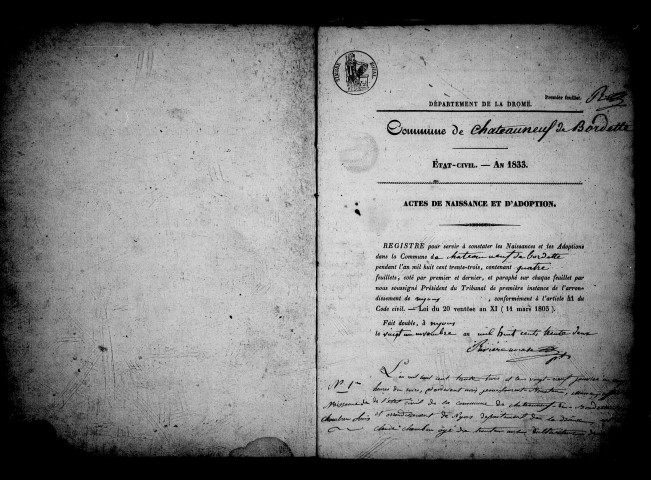 TIMBRE ROYAL
Première feuillet.
DÉPARTEMENT DE LA DROME.
Commune de chateauneuf de Bordette
ÉTAT-CIVIL. — AN 1833.
ACTES DE NAISSANCE ET D'ADOPTION.
REGISTRE pour servir à constater les Naissances et les Adoptions
dans la Commune de chateauneuf de bordette
pendant l'an mil huit cent trente-trois, contenant quatre
feuillets, coté par premier et dernier, et paraphé sur chaque feuillet par
nous soussigné Président du Tribunal de première instance de l'arron-
dissement de nyons , conformément à l'article 41 du
Code civil. — Loi du 20 ventôse an XI (11 mars 1803).
Fait double, à nyons
le vingt un novembre an mil huit cent trente deux
L'an mil huit cent trente trois et le vingt-neuf janvier
N° 1er
Naissance de
chambon
de l'état civil de la commune de chateauneuf de Bordette
et arrondissement de Nyons département de la drome
claude chambon agé de trente